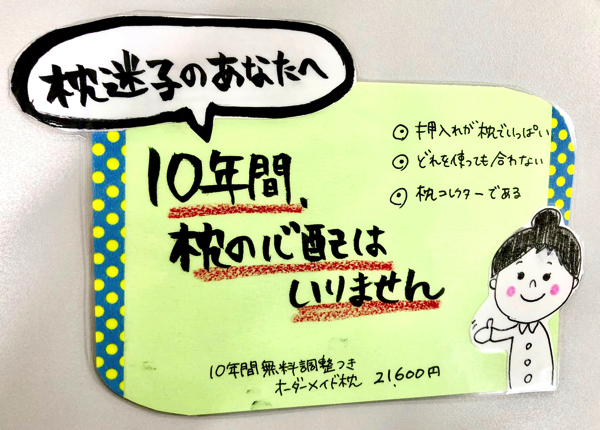 枕迷子のあなたへ
10年間、
枕の心配は
いりません
◎ 押入れが枕でいっぱい
◎ どれを使っても合わない
◎ 枕コレクターである
10年間無料調整つき
オーダーメイド枕 21,600円